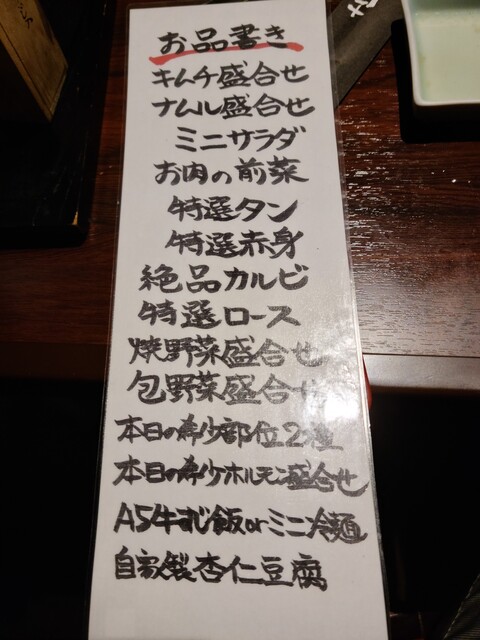 お品書き
キムチ盛合せ
ナムル盛合せ
ミニサラダ
お肉の前菜
特選タン
特選赤身
絶品カルビ
特選ロース
焼野菜盛合せ
包野菜盛合せ
本日の希少部位2種
本日の希少ホルモン盛合せ
A5牛まぜ飯orミニ冷麺
自家製杏仁豆腐